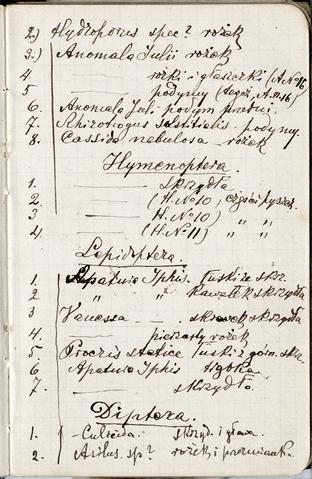 2) Hydroporus spec? rożek
3.) Anomala Julii rożek
4 —— rożki i głaszczki (A № 16
5 —— podyny (tegoż, A.№16)
6. Anomala Jul. podym przedni.
7. Rhizotrogus solstitialis podyny.
8. Cassida nebulosa rożek
Hymenoptera.
1. —— skrzydła
2 —— (H. № 10, części tyszcz.
3 —— H. № 10) „ „
4 —— (H № 11) „ „
Lepidoptera.
1. Apatura Iphis. łuski ze skrz.
2 „ „ kawałek skrzydła
3 Vanessa — skrawek skrzydła
4. —— pierzasty rożek
5. Procris statice łuski z górn. skrz.
6 Apatura Iphis trąbka
7. —— skrzydło.
Diptera.
1. Culicida. skrzyd. i głowa.
2. Asilus sp? rożek i przezmianka.